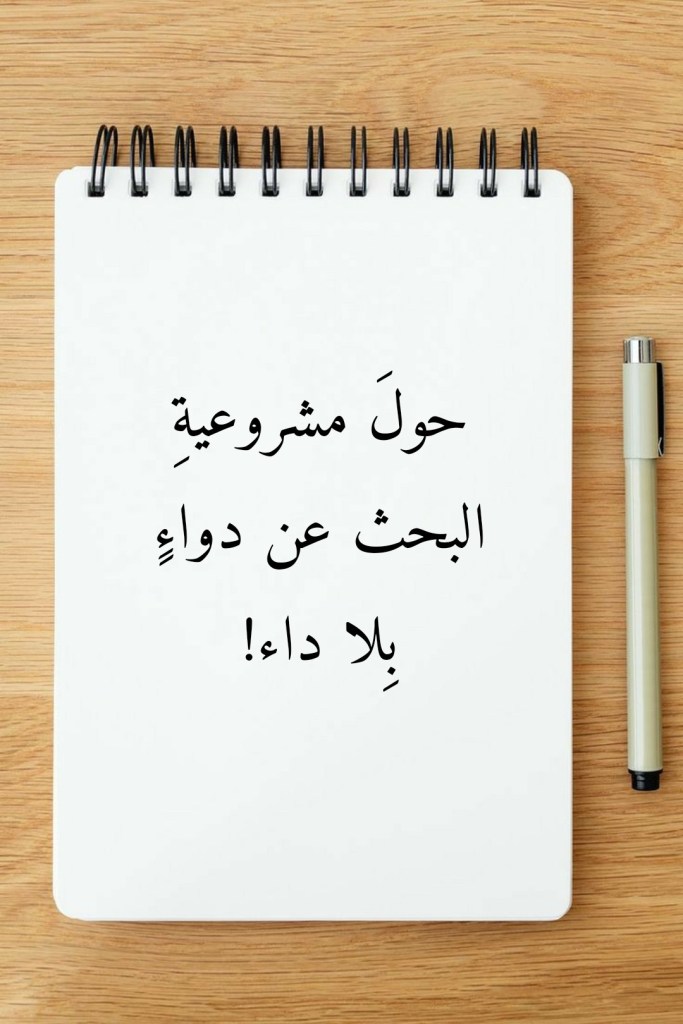 حولَ مشروعيةِ
البحث عن دواءٍ
بِلا داء!